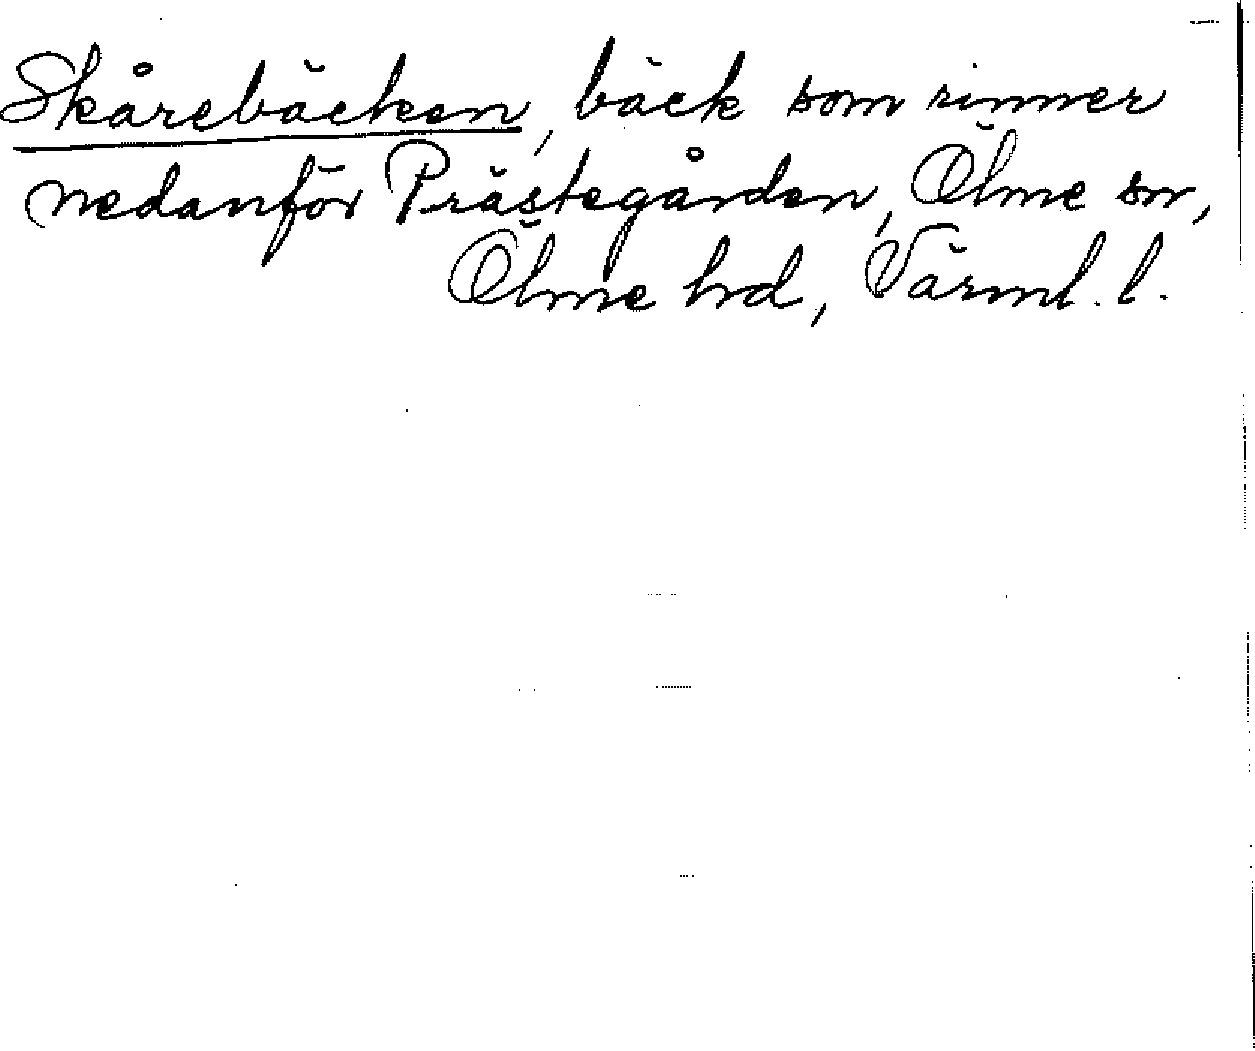 Skårebäcken, bäck som rinner
nedanför Prästegården, Ölme sn,
Ölme hd, Värml. l.